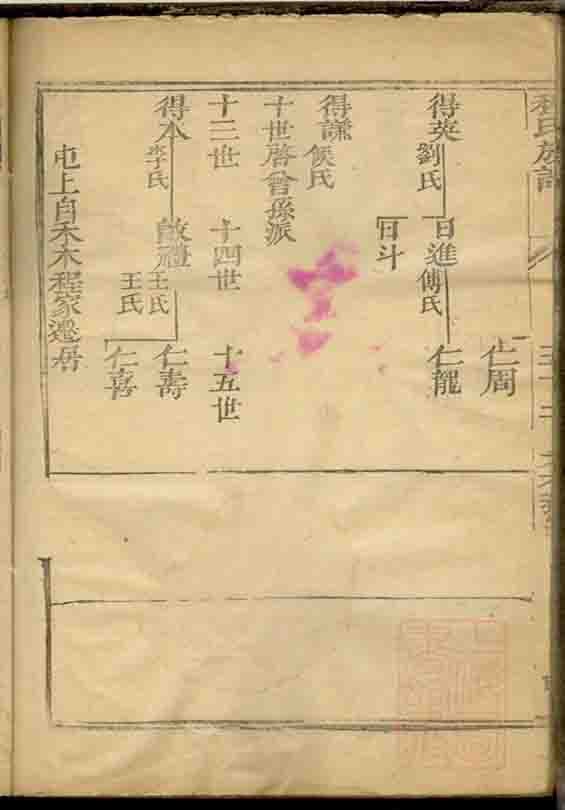 程氏族譜
仁周
得英 劉氏 日進 傅氏 仁龍
日斗
得謙 侯氏
十世啓曾孫派
十三世 十四世 十五世
得本 李氏 啟禮 王氏 仁壽
王氏 仁喜
屯上自禾木程家邊居